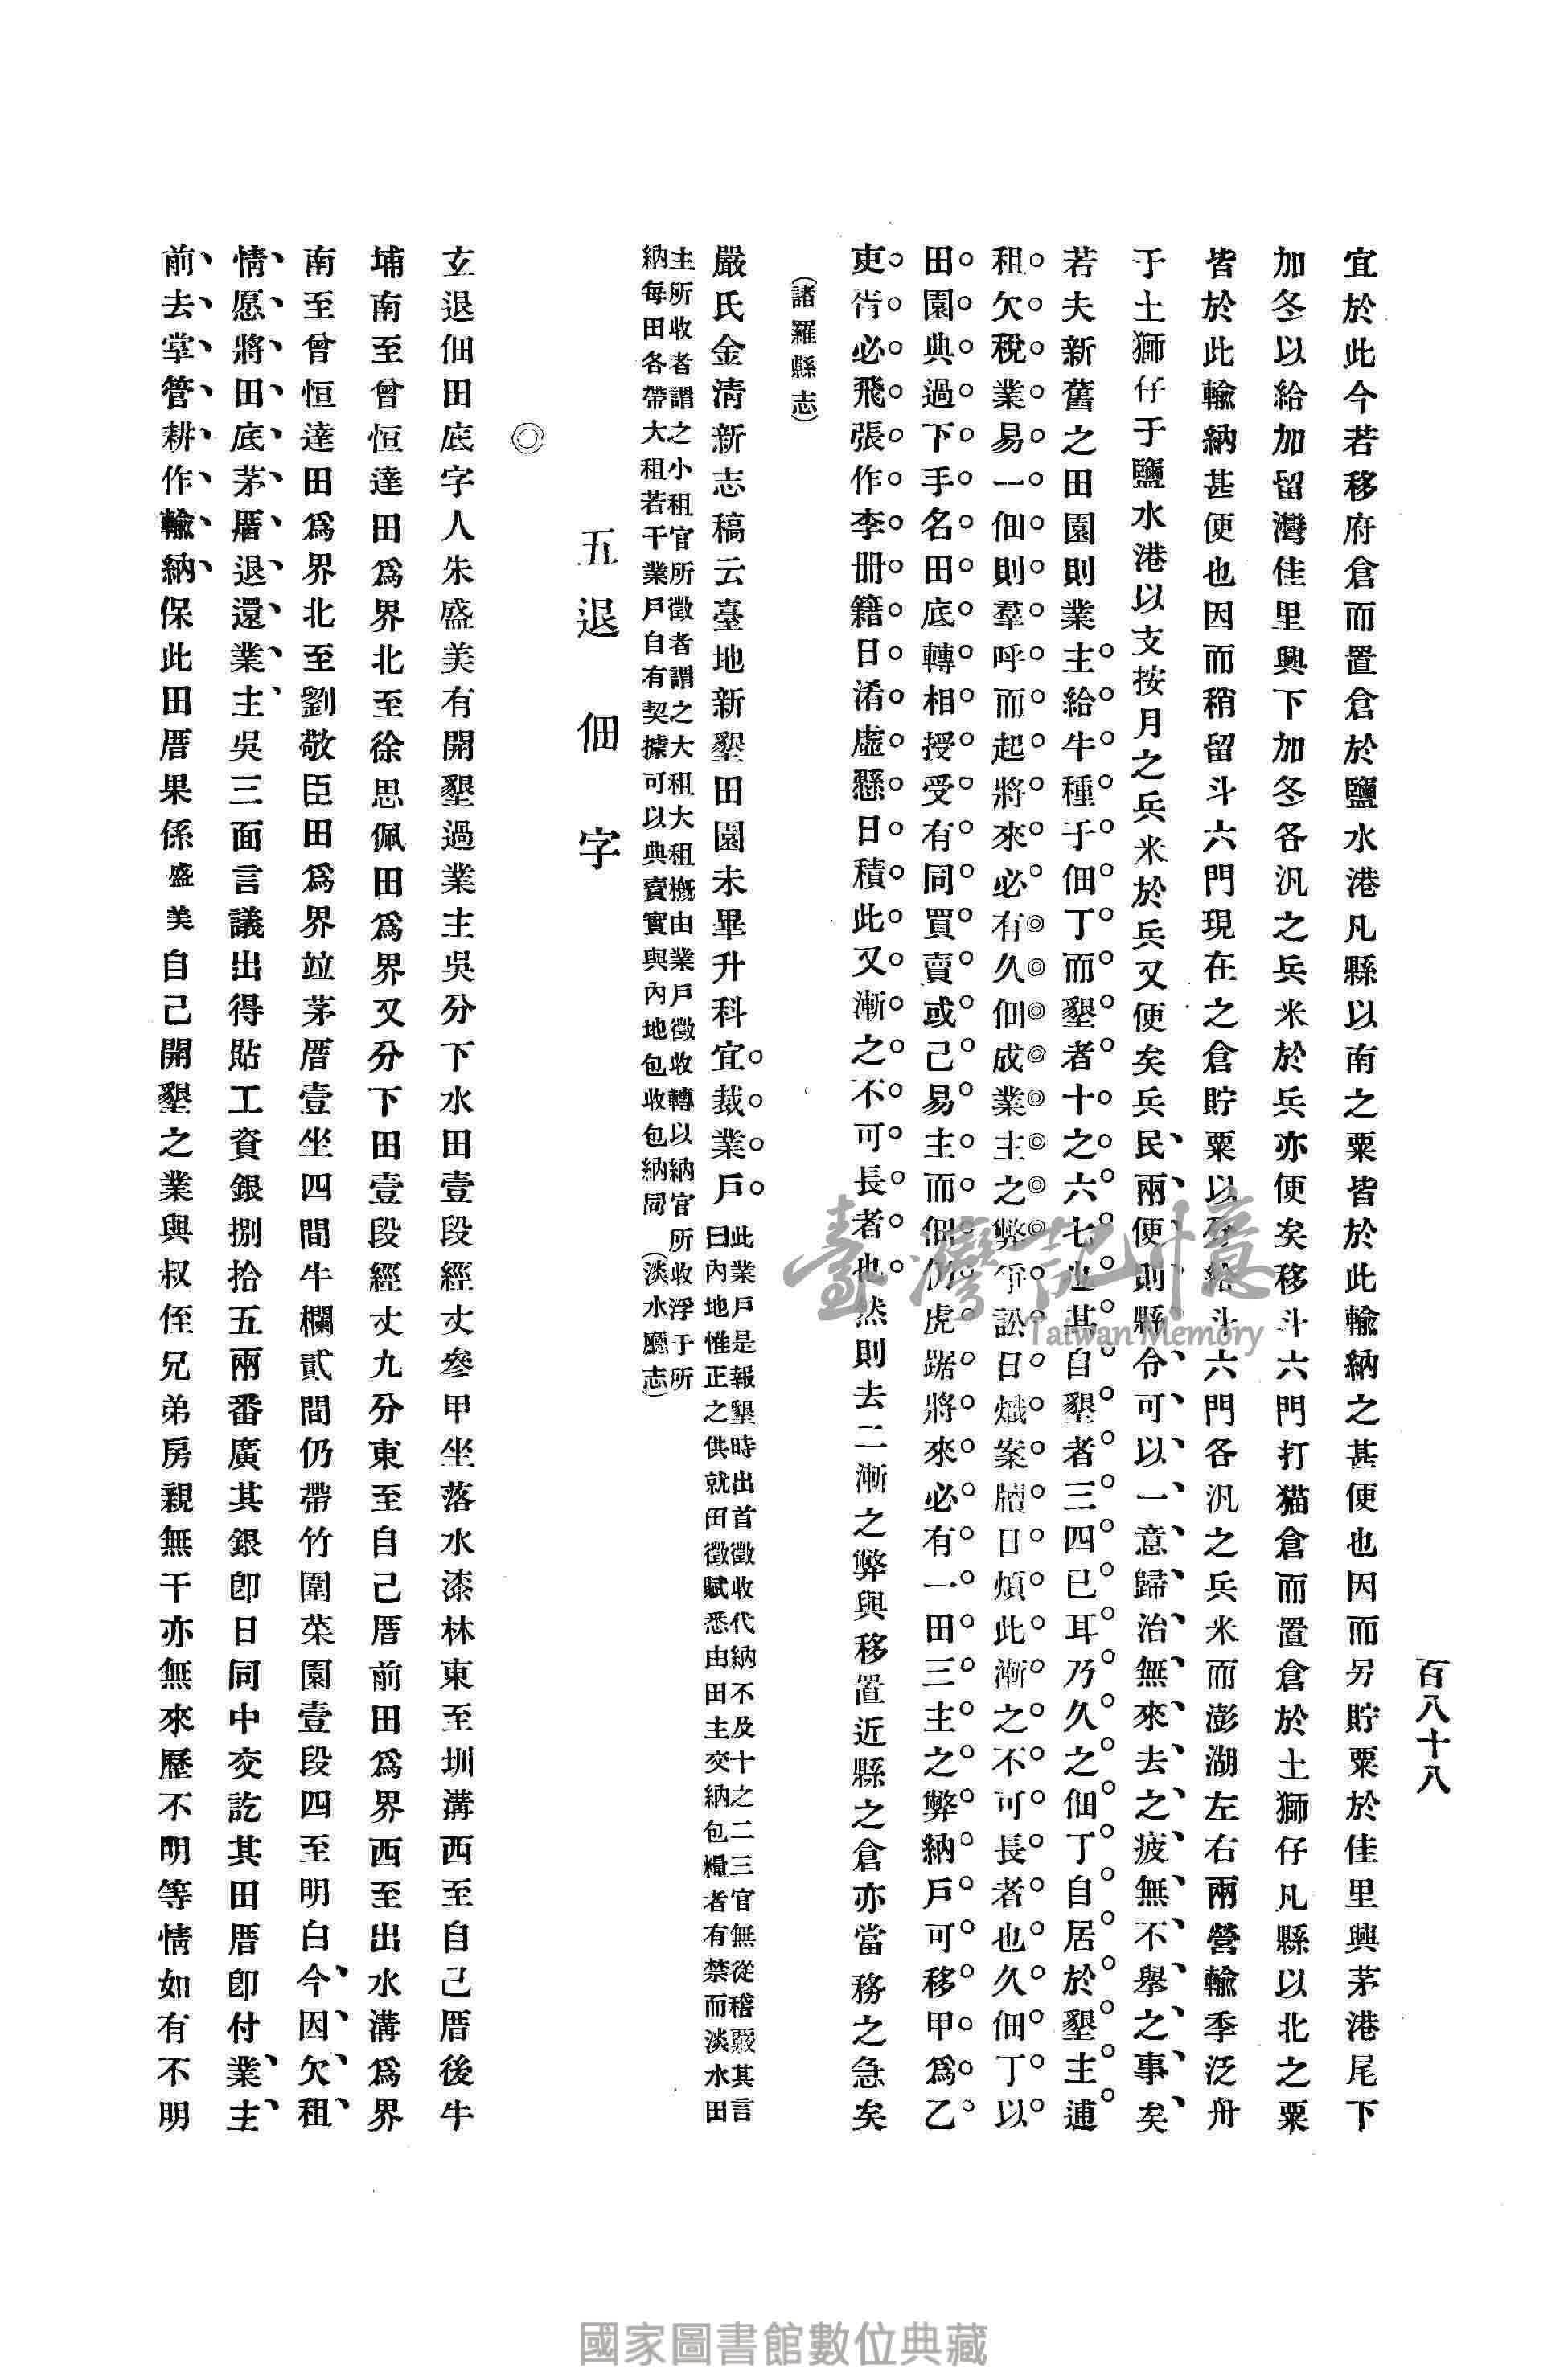 百八十八
宜於此今若移府倉而置倉於鹽水港凡縣以南之粟皆於此輸納之甚便也因而另貯粟於佳里興茅港尾下
加冬以給加留灣佳里興下加冬各汛之兵米於兵亦便矣移斗六門打猫倉而置倉於土獅仔凡縣以北之粟
皆於此輸納甚便也因而稍留斗六門現在之倉貯粟以分給斗六門各汛之兵米而澎湖左右兩營輸季泛舟
于土獅仔于鹽水港以支按月之兵米於兵又便矣兵民、兩、便、則、縣、令、可、以、一、意、歸、治、無、來、去、之、疲、無、不、舉、之、事、矣、
若夫新舊之田園則業主給牛種于佃丁而墾者十之六七也其自墾者三四已耳乃久之佃丁自居於墾主逋
租欠稅業易一佃則羣呼而起將來必有久佃成業主之弊爭訟日熾案牘日煩此漸之不可長者也久佃丁以
田園典過下手名田底轉相授受有同買賣或己易主而佃仍虎踞將來必有一田三主之弊納戶可移甲爲乙
吏胥必飛張作李冊籍日淆虛懸日積此又漸之不可長者也然則去二漸之弊與移置近縣之倉亦當務之急矣
(諸羅縣志)
嚴氏金淸新志稿云臺地新墾田園未畢升科宜裁業戶
此業戶是報墾時出首徵收代納不及十之二三官無從稽覈其言
曰內地惟正之供就田徵賦悉由田主交納包糧者有禁而淡水田
主所收者謂之小租官所徵者謂之大租大租槪由業戶徵收轉以納官所收浮于所
納每田各帶大租若干業戶自有契據可以典賣實與內地包收包納同(淡水廳志)
◎
五退佃字
立退佃田底字人朱盛美有開墾過業主吳分下水田壹段經丈參甲坐落水漆林東至圳溝西至自己厝後牛
埔南至曾恒達田爲界北至徐思佩田爲界又分下田壹段經丈九分東至自己厝前田爲界西至出水溝爲界
南至曾恒達田爲界北至劉敬臣田爲界竝茅厝壹坐四間牛欄貳間仍帶竹圍菜園壹段四至明白今、因、欠、租、
情、愿、將、田、底、茅、厝、退、還、業、主、吳三面言議出得貼工資銀捌拾五兩番廣其銀卽日同中交訖其田厝卽付業、主、
前、去、掌、管、耕、作、輸、納、保此田厝果係盛美自己開墾之業與叔侄兄弟房親無干亦無來歷不明等情如有不明
臺灣記憶
Taiwan Memory
國家圖書館數位典藏